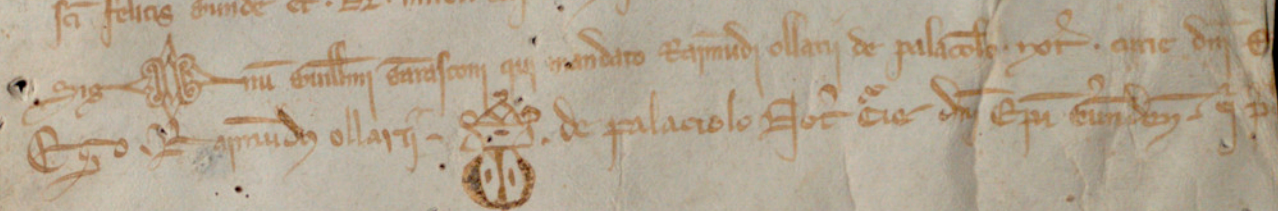 sci felicis Gunde et
Sig num Guillmi Tarasconi qui mandato Raimudi ollarii de palaciolo not curie dni
Ego Raymudus ollarii de palaciolo Not Curie dni Epi Gerunden